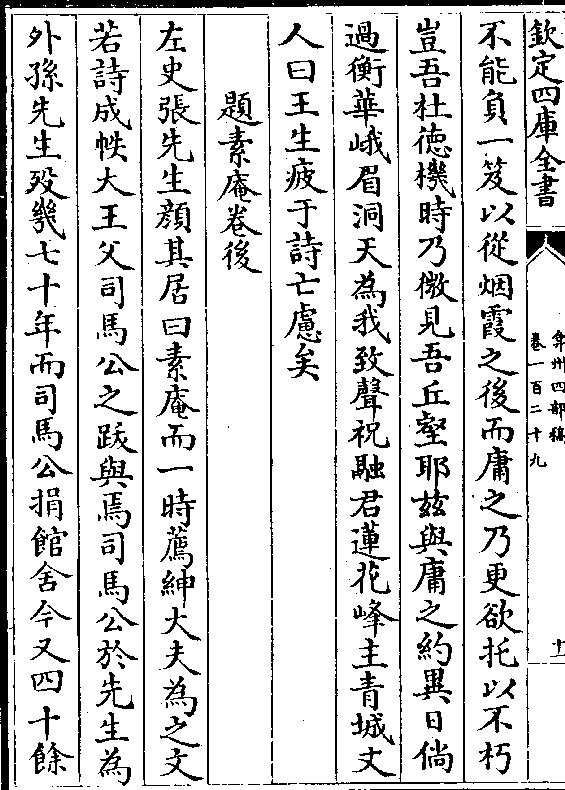 欽定四庫全書
弇州四部稿
卷一百二十九
十一
不能負一笈以從烟霞之後而庸之乃更欲托以不朽
豈吾杜徳機時乃微見吾丘壑耶兹與庸之約異日倘
過衡華峨眉洞天為我致聲祝融君蓮花峰主青城丈
人曰王生疲于詩亡慮矣
題素庵卷後
左史張先生顔其居曰素庵而一時薦紳大夫為之文
若詩成帙大王父司馬公之跋與焉司馬公於先生為
外孫先生殁幾七十年而司馬公捐館舍今又四十餘